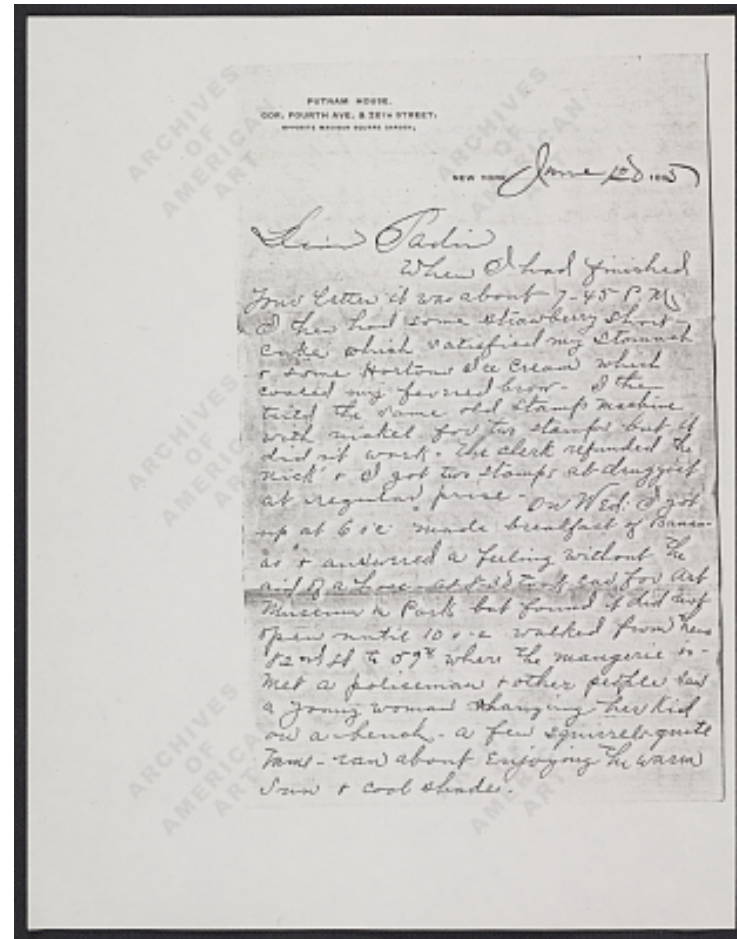 PUTNAM HOUSE,
COR. FOURTH AVE. & 26TH STREET,
OPPOSITE MADISON SQUARE GARDEN,
NEW YORK June 1895
When I had finished
Your letter it was about 7-45 P.M.
I then had some strawberry short-
cake which satisfied my stomach
& some Hortons Ice Cream which
cooled my fevered brow - I then
tried the same old stamp machine
with nickel for two stamps but it
did nt work. The clerk refunded the
nick' & I got two stamps at druggist
at regular price - On Wed. I got
up at 6 o'c made breakfast of Banan-
as & answered a feeling without the
aid of a hose - at took car for Art
Museum in Park but found it did not
open until 10 o-c walked from
82nd st to 59th where the mangerie is -
Met a policeman & other people saw
a young woman changing her kid
on a bench - a few squirrels quite
tame - ran about enjoying the warm
Sun & cool shades.
ARCHIVES
OF
AMERICAN
ART